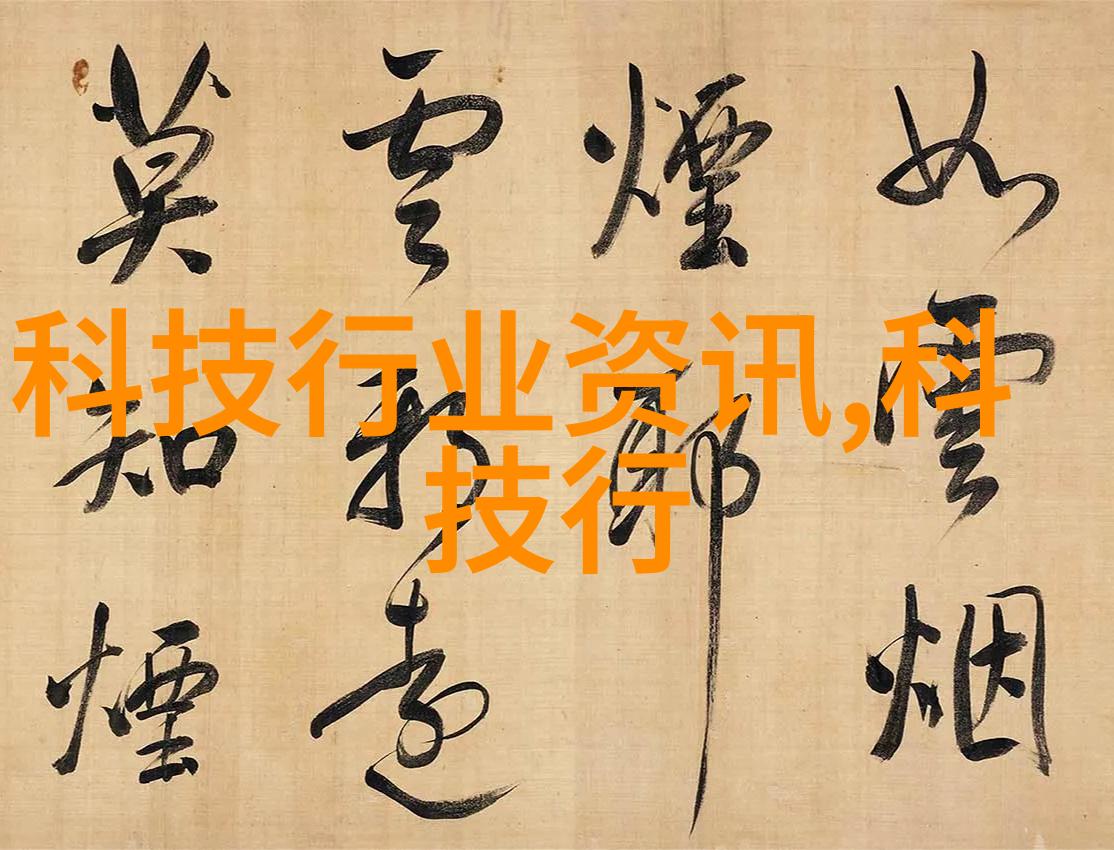 如雲烟
煙耶
雲邪遠
莫知煙
科技行业资讯,科
技行